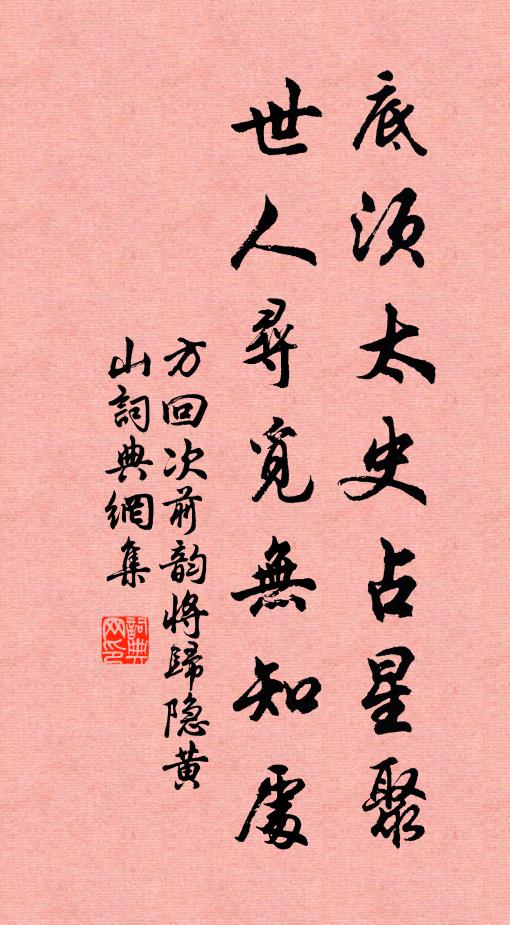 底须太史占星聚
世人尋覓無知處
方回次前韵將歸隐黄
山詞典網集
詞典
网印